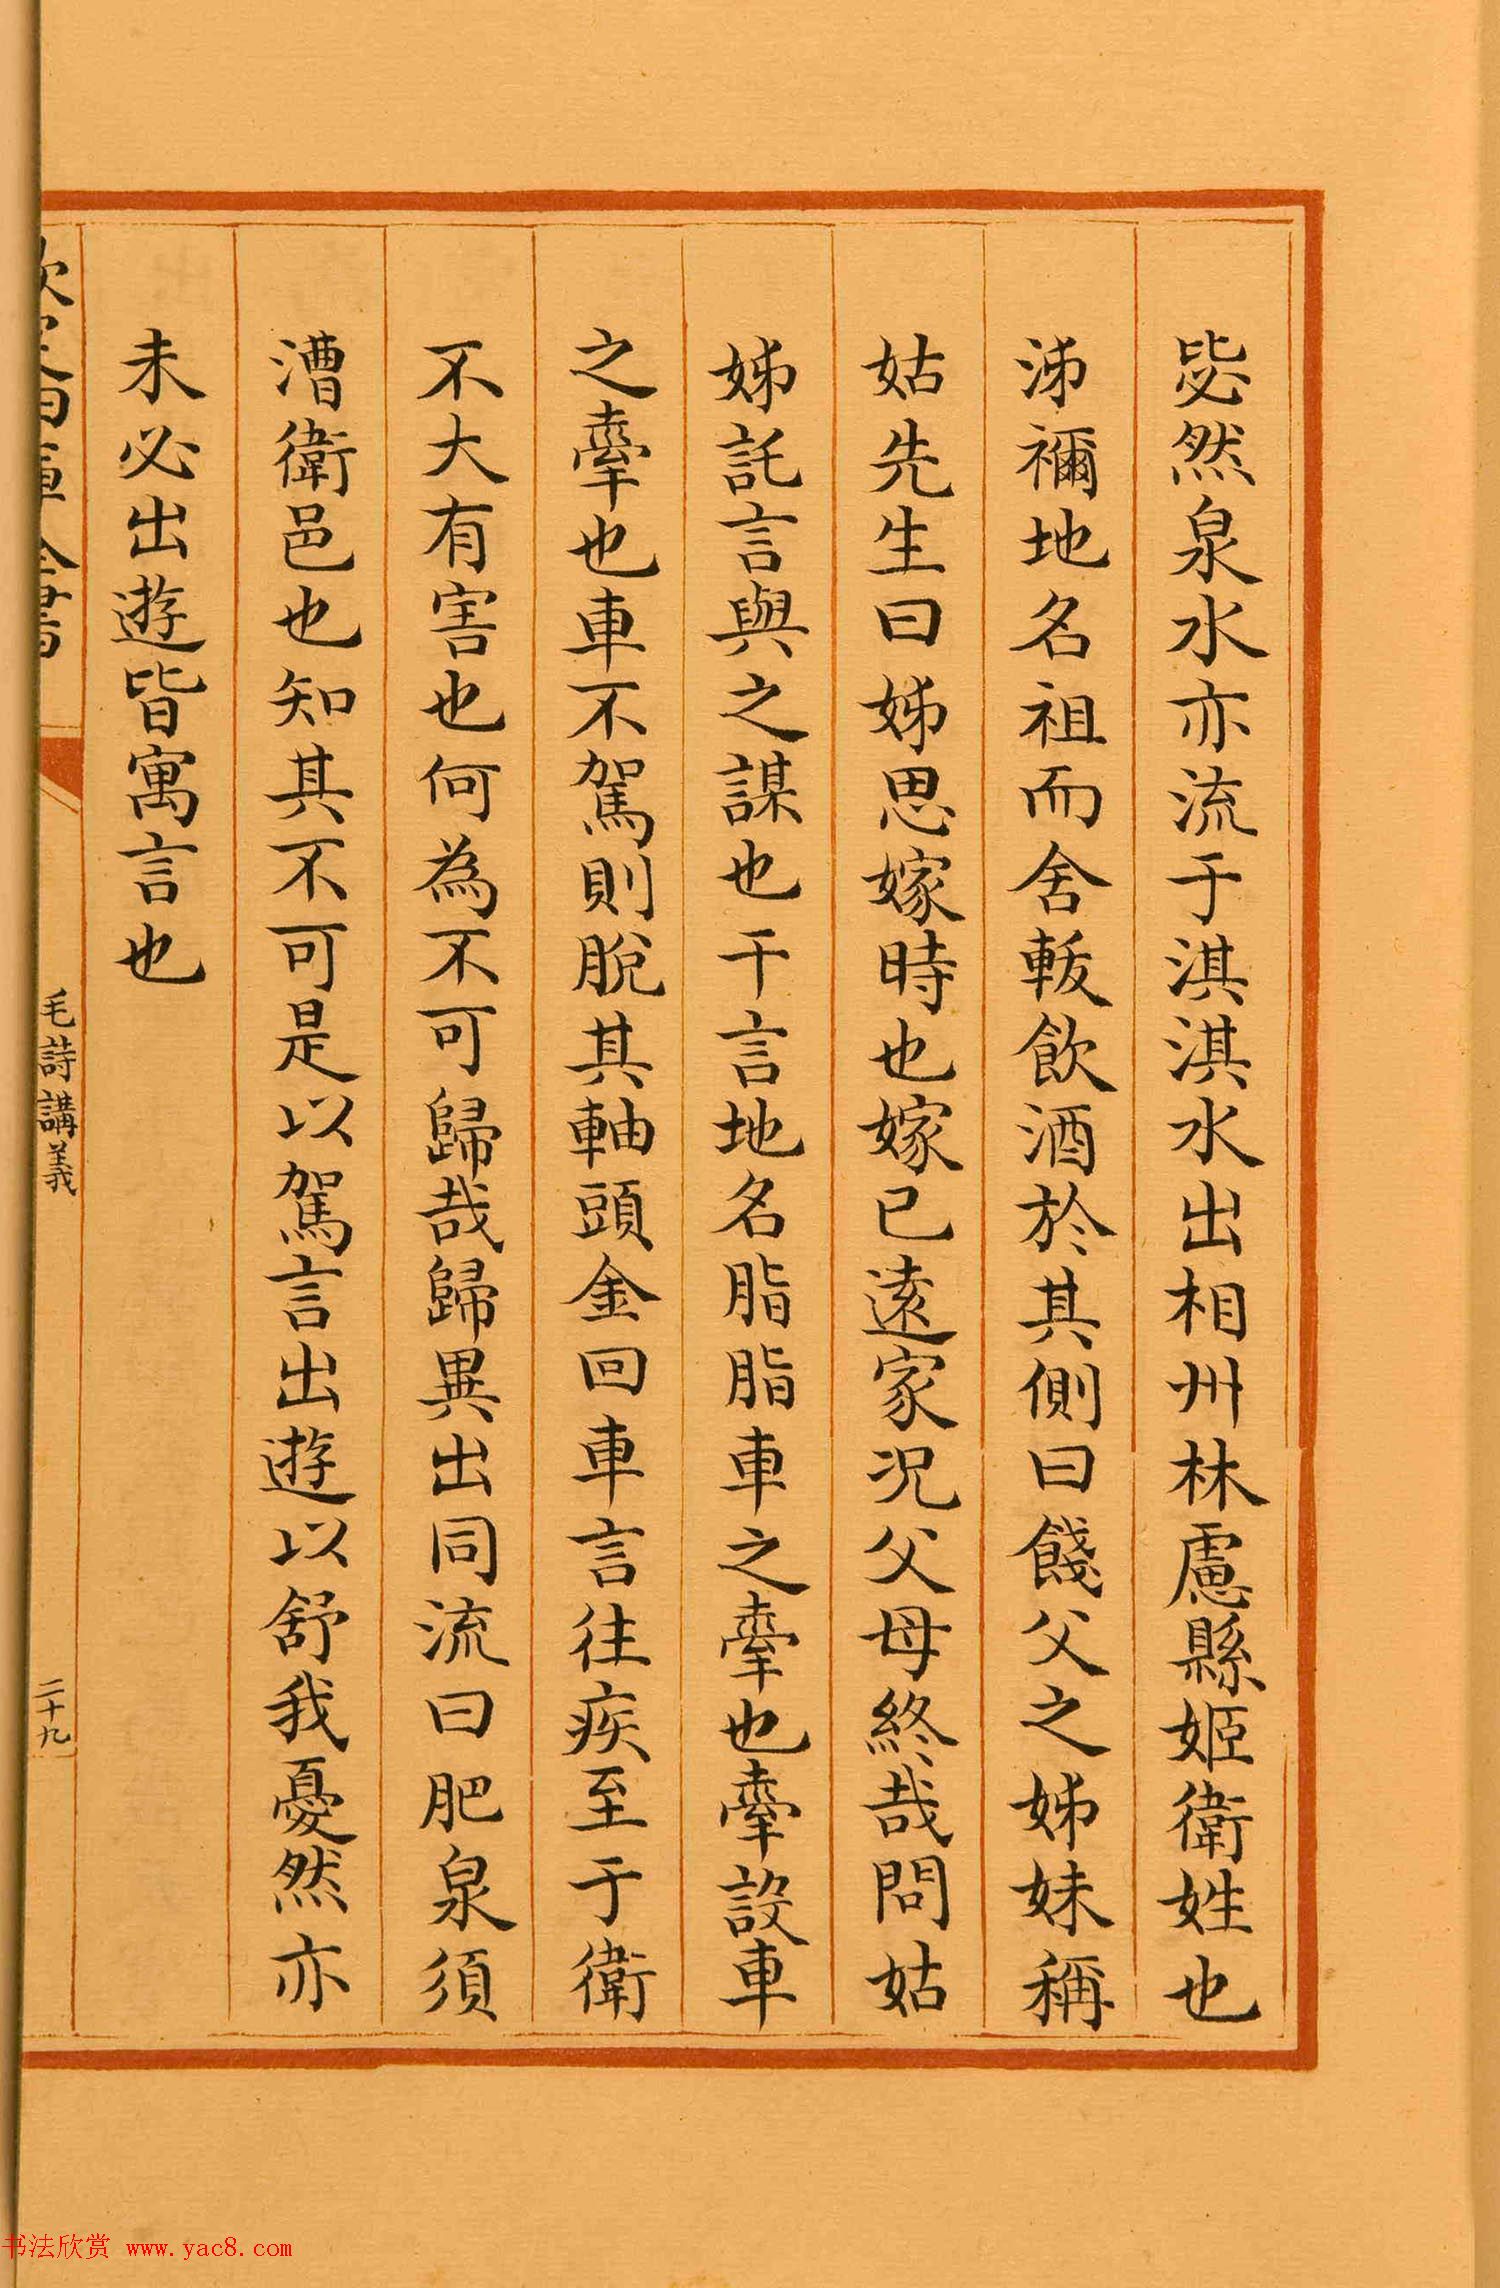 毖然泉水亦流于淇淇水出相州林慮縣姬衛姓也
泲禰地名祖而舍軷飲酒於其側曰餞父之姊妹稱
姑先生曰姊思嫁時也嫁已遠家况父母終哉問姑
姊託言與之謀也干言地名脂脂車之舝也舝設車
之舝也車不駕則脫其軸頭金回車言往疾至于衛
不大有害也何為不可歸哉歸異出同流曰肥泉須
漕衛邑也知其不可是以駕言出遊以舒我憂然亦
未必出遊皆寓言也
毛詩講義
二十九
书法欣赏 www.yac8.com